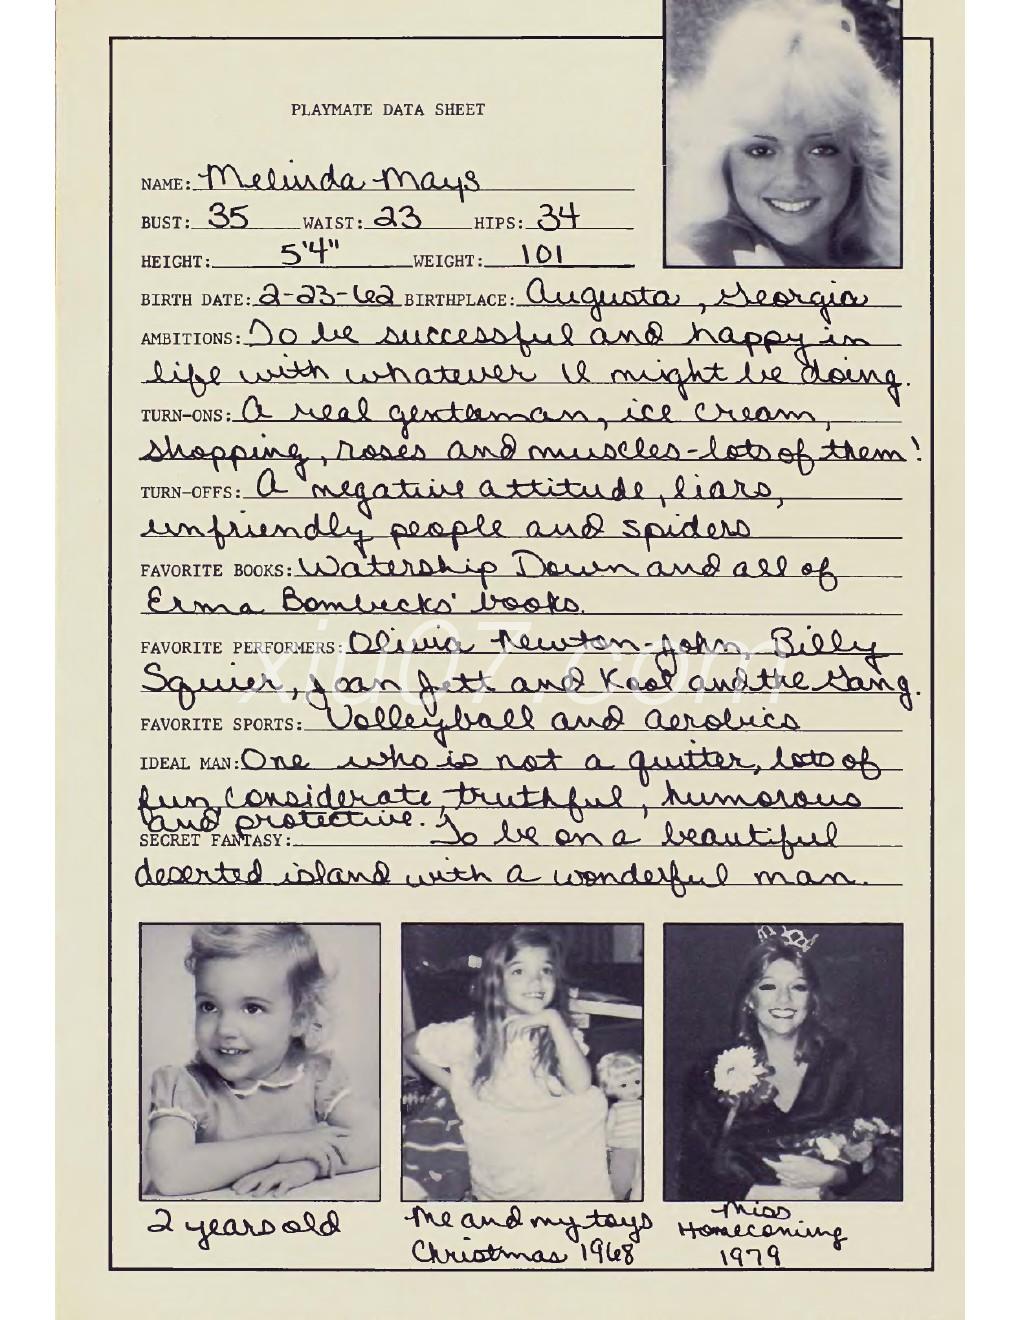 PLAYMATE DATA SHEET
NAME: Melinda Mays
BUST: 35 WAIST: 23 HIPS: 34
HEIGHT: 5'4" WEIGHT: 101
BIRTH DATE: 2-23-62 BIRTHPLACE: Augusta, Georgia
AMBITIONS: To be successful and happy in
life with whatever I might be doing.
TURN-ONS: A real gentleman, ice cream,
shopping, roses and muscles-lots of them!
TURN-OFFS: A negative attitude, liars,
unfriendly people and spiders
FAVORITE BOOKS: Watership Down and all of
Erma Bombecks' books.
FAVORITE PERFORMERS: Olivia Newton-John, Billy
Squier, Joan Jett and Kool and the Gang.
xiu07.com
FAVORITE SPORTS: Volleyball and aerobics
IDEAL MAN: One who is not a quitter, lots of
fun, considerate, truthful, humorous
and protective.
SECRET FANTASY: To be on a beautiful
deserted island with a wonderful man.
2 years old
Me and my toys
Christmas 1968
Miss
Homecoming
1979